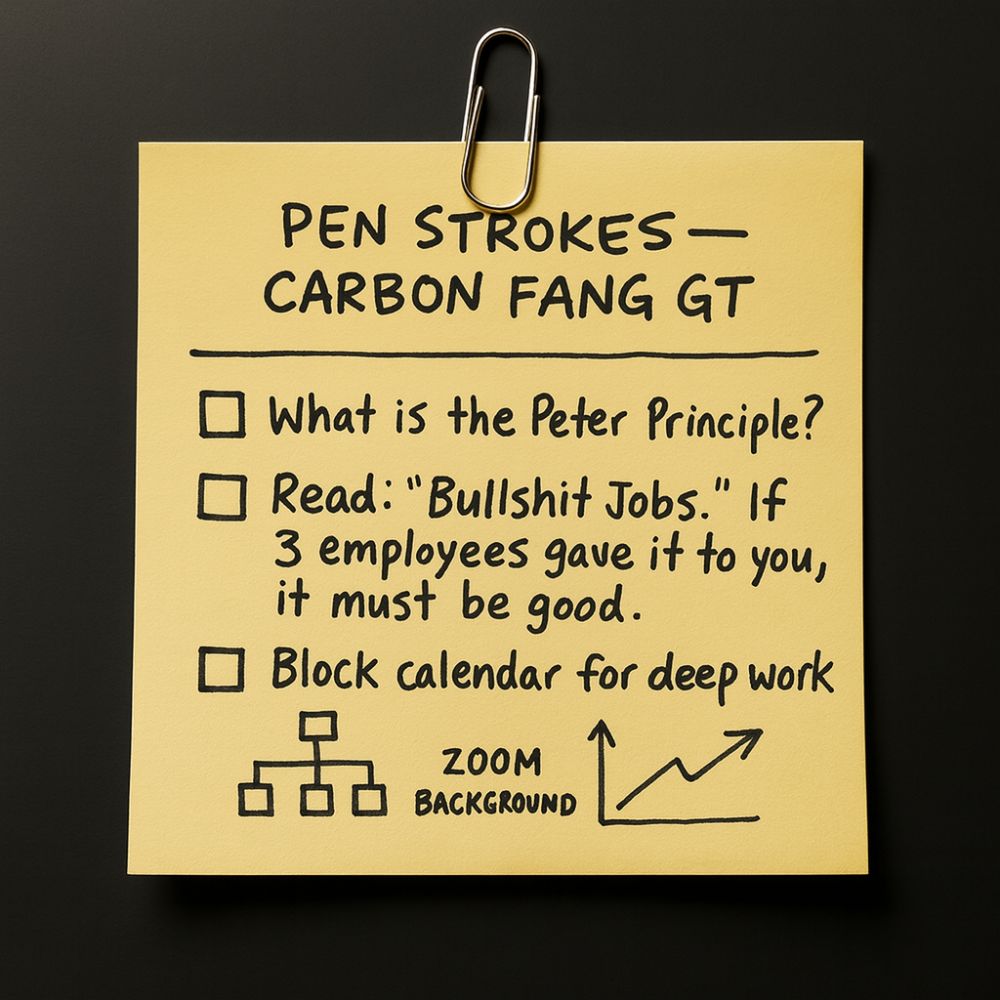 PEN STROKES—
CARBON FANG GT
What is the Peter Principle?
Read: "Bullshit Jobs." If
3 employees gave it to you,
it must be good.
Block calendar for deep work
ZOOM
BACKGROUND